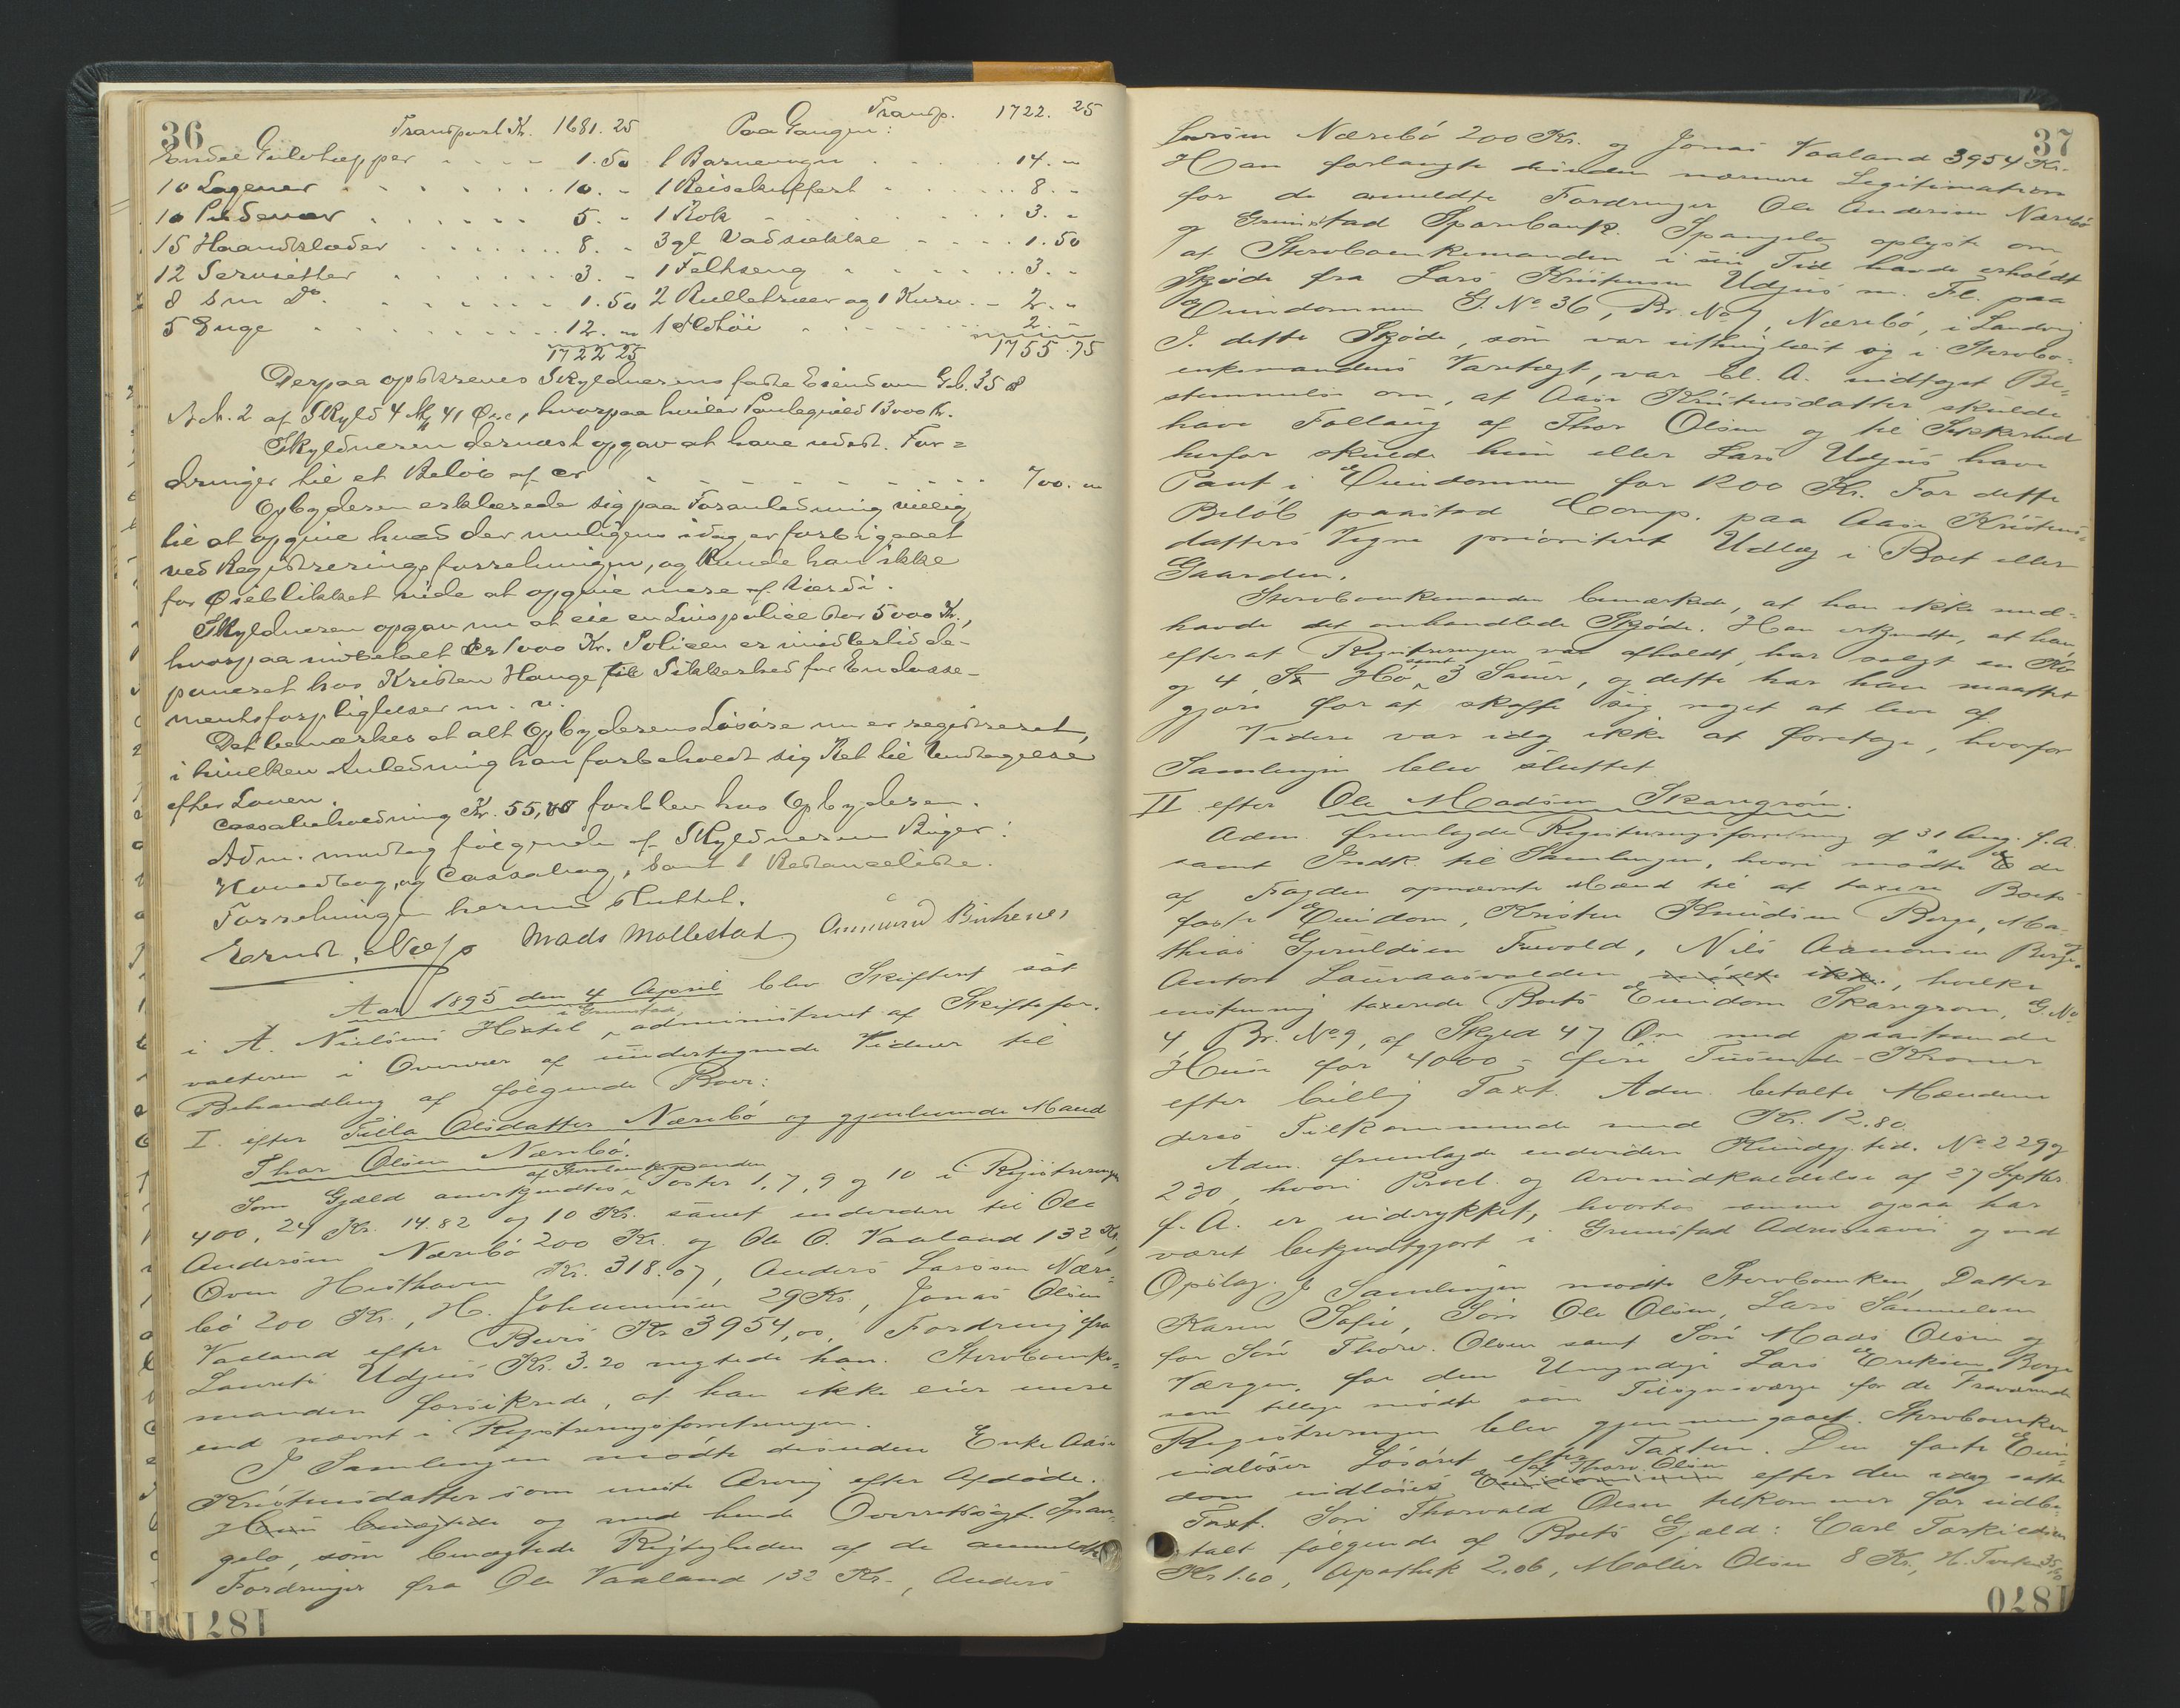 36
Transport Kr. 1681. 25
Endel Gulvtepper 1. 50
10 Lagener 10. -
10 Pudevar 5. -
15 Haandklæder 8. -
12 Servietter 3. -
8 Sm Do. 1. 50
5 Duge 12. -
1722 25
Transp. 1722. 25
Paa Gangen:
1 Barnevogn 14. -
1 Reisekuffert 8. -
1 Rok 3. -
3 gl Vadsække 1. 50
1 Feltseng 3. -
2 Rulletræer og 1 Kurv. - 2. -
1 Ildtøi 2. -
1755. 75
Derpaa opskreves Skyldnerens faste Eiendom Gb. 358
B.N. 2 af Skyld 4 Mk 41 Øre, hvorpaa hviler Pantegjæld 13000 Kr.
Skyldneren dernæst opgav at have udest. For=
dringer til et Beløb af ca 700. -
Opbyderen erklærede sig paa Foranledning villig
til at opgive hvad der muligens idag er forbigaaet
ved Registreringsforretningen, og kunde han ikke
for Øieblikket vide at opgive mere af Værdi.
Skyldneren opgav nu at eie en Livspolice stor 5000 Kr.,
hvorpaa indbetalt ca 1000 Kr. Policen er imidlertid de-
poneret hos Kristen Hauge til Sikkerhed for Endosse-
mentsforpligtelser m. v.
Det bemærkes at alt Opbyderens Løsøre nu er registreret,
i hvilken Anledning han forbeholdt sig Ret til Undtagelse
efter Loven.
Cassabeholdning Kr. 55,00 forblev hos Opbyderen.
Adm. modtog følgende af Skyldnerens Bøger:
Hovedbog, og Cassabog, samt 1 Restanceliste.
Forretningen hermed sluttet.
Ernst. Næss Mads Mollestad Anmund Birkenes
Aar 1895 den 4 April blev Skifteret sat
i A. Nielsens Hotel i Grimstad, administreret af Skiftefor-
valteren i Overvær af undertegnede Vidner til
Behandling af følgende Boer:
I. efter Tilla Olsdatter Nærebø og gjenlevende Mand
Thor Olsen Nærebø.
Som Gjæld anerkjendtes af Sterboenkemanden Poster 1, 7, 9 og 10 i Registreringen
400, 24 Kr. 14.82 og 10 Kr. samt endvidere til Ole
Andersen Nærebø 200 Kr. og Ole O. Vaaland 132 Kr,
Oven Hesthaven Kr. 318.07, Anders Larssen Nære-
bø 200 Kr., H. Johannesen 29 Kr., Jonas Olsen
Vaaland efter Bevis Kr 3954,00. Fordring fra
Laurits Udjus Kr. 3.20 negtede han. Sterboenke-
manden forsikrede, at han ikke eier mere
end nævnt i Registreringsforretningen.
I Samlingen mødte desuden Enke Aase
Kristensdatter som eneste Arving efter Afdøde.
Hun benægtede og med hende Overretssagf. Span-
gelo, som benægtede Rigtigheden af de anmeldte
Fordringer fra Ole Vaaland 132 Kr., Anders
37
Larsen Nærebø 200 Kr. og Jonas Vaaland 3954 Kr.
Han forlangte desuden nærmere Legitimation
for de anmeldte Fordringer Ole Andersen Nærebø
og Grimstad Sparebank. Spangelo oplyste om
at Sterboenkemanden i sin Tid havde erholdt
Skjøde fra Lars Kristensen Udjus m. Fl. paa
Eiendommen G. No 36, Br. No 7, Nærebø, i Landvig
I dette Skjøde, som var uthinglæst og i Sterbo-
enkemandens Varetægt, var bl. A. indtaget Be-
stemmelse om, at Aase Kristensdatter skulde
have Følloug af Thor Olsen og til Sikkerhed
herfor skulde hun eller Lars Udjus have
Pant i Eiendommen for 1200 Kr. For dette
Beløb paastod Comp. paa Aase Kristens-
datters Vegne prioriteret Udlæg i Boet eller
Gaarden.
Sterboenkemanden bemærkede, at han ikke med-
havde det omhandlede Skjøde. Han erkjendte, at han,
efterat Registreringen var afholdt, har solgt en Ko
og 4 St. Hø samt 3 Sauer, og dette har han maattet
gjøre for at skaffe sig noget at leve af.
Videre var idag ikke at foretage, hvorfor
Samlingen blev sluttet
II efter Ole Madsen Skarsgrøm.
Adm. fremlagde Registreringsforretning af 31 Aug. f. A.
samt Indk. til Samlingen, hvori mødte de
af Fogden opnævnte Mænd til at taxere Boets
faste Eiendom, Kristen Knudsen Berge, Ma-
thias Gjeruldsen Trevold, Nils Aanonsen Berge og
Anton Lauvaasvolden mødte ikke, hvilke
enstemmig taxerede Boets Eiendom Skarsgrøm, G. No
4 Br. No 9, af Skyld 47 Øre med paastaaende
Huse for 4000 - fire Tusinde - Kroner
efter billig Taxt. Adm. betalte Mændene
deres Tilkommende med Kr. 12.80.
Adm. fremlagde endvidere Kundgj. tid. No 229 og
230, hvori Procl. og Arveindkaldelse af 27 Septbr.
f. A. er indrykket, hvorhos samme ogsaa har
været bekjendtgjort i Grimstad Adresseavis og ved
Opslag. I Samlingen mødte Sterboenken, Datter
Karen Sofie, Søn Ole Olsen, Lars Samuelsen
for Søn Thorv. Olsen samt Søn Mads Olsen og
Værgen for den Umyndige Lars Eriksen Berge
som tillige mødte som Tilsynsværge for de Fraværende
Registreringen blev gjennemgaaet. Sterboenken
indløser Løsøret efter Taxten. Den faste Eien-
dom indløses af Thorv. Olsen Eiendommen efter den idag satte
Taxt. Søn Thorvald Olsen tilkommer for udbe-
talt følgende af Boets Gjæld: Carl Terkildsen
Kr 1.60, Apothek 2.06, Møller Olsen 8 Kr., H.
1871
1870